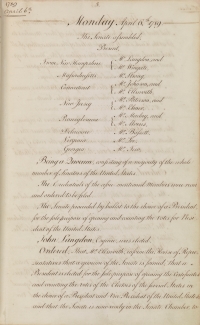 1789
April 6th
Monday April 6th 1789
The Senate assembled,
Present,
From New Hampshire { Mr Langdon, and
Mr Wingate,
Massachusetts Mr Strong,
Connecticut { Mr Johnson, and
Mr Ellsworth,
New Jersey { Mr Paterson, and
Mr Elmer,
Pennsylvania { Mr Maclay, and
Mr Morris,
Delaware Mr Bassett,
Virginia Mr Lee,
Georgia Mr Few,
Being a Quorum, consisting of a majority of the whole
number of Senators of the United States.
The Credentials of the afore mentioned Members were read
and ordered to be filed.
The Senate proceeded by ballot to the choice of a President
for the sole purpose of opening and counting the votes for Presi-
dent of the United States.
John Langdon, Esquire, was elected.
Ordered, That Mr Ellsworth inform the House of Repre-
sentatives that a quorum of the Senate is formed, that a
President is elected for the sole purpose of opening the Certificates
and counting the votes of the Electors of the several States in
the choice of a President and Vice President of the United States,
and that the Senate is now ready in the Senate Chamber to